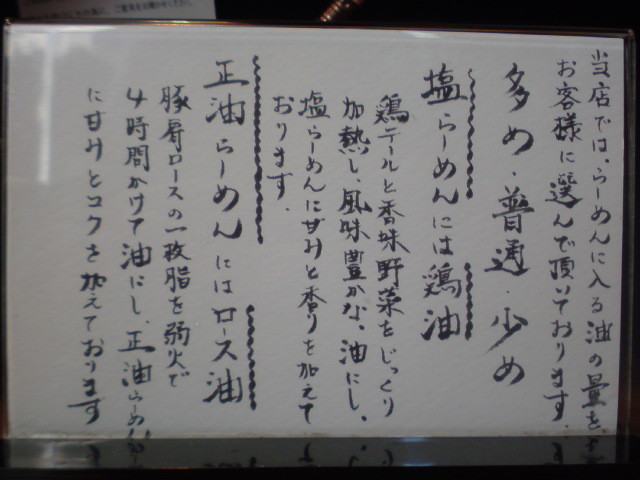 当店では、らーめんに入る油の量を、
お客様に選んで頂いております。
多め・普通・少め
塩らーめんには鶏油
鶏テールと香味野菜をじっくり
加熱し、風味豊かな、油にし、
塩らーめんに甘みと香りを加えて
おります。
正油らーめんにはロース油
豚肩ロースの一枚脂を弱火で
4時間かけて油にし、正油らーめん
に甘みとコクを加えております